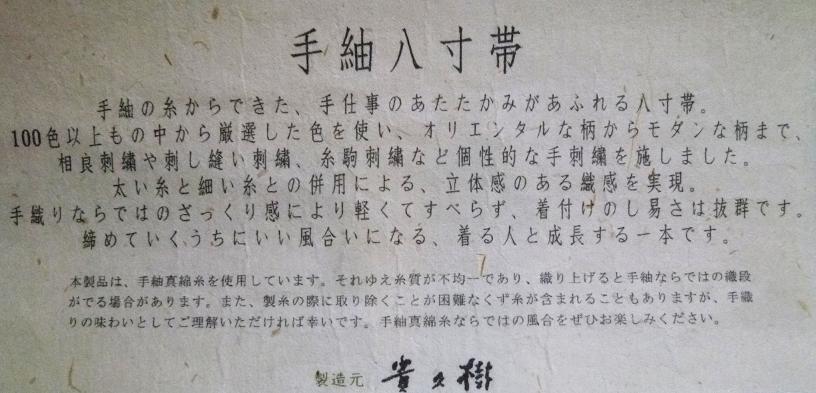 手紬八寸帯
手紬の糸からできた、手仕事のあたたかみがあふれる八寸帯。
100色以上もの中から厳選した色を使い、オリエンタルな柄からモダンな柄まで、
相良刺繍や刺し縫い刺繍、糸駒刺繍など個性的な手刺繍を施しました。
太い糸と細い糸との併用による、立体感のある織感を実現。
手織りならではのざっくり感により軽くてすべらず、着付けのし易さは抜群です。
締めていくうちにいい風合いになる、着る人と成長する一本です。
本製品は、手紬真綿糸を使用しています。それゆえ糸質が不均一であり、織り上げると手紬ならではの織段
がでる場合があります。また、製糸の際に取り除くことが困難なくず糸が含まれることもありますが、手織
りの味わいとしてご理解いただければ幸いです。手紬真綿糸ならではの風合をぜひお楽しみください。
製造元 貴久樹